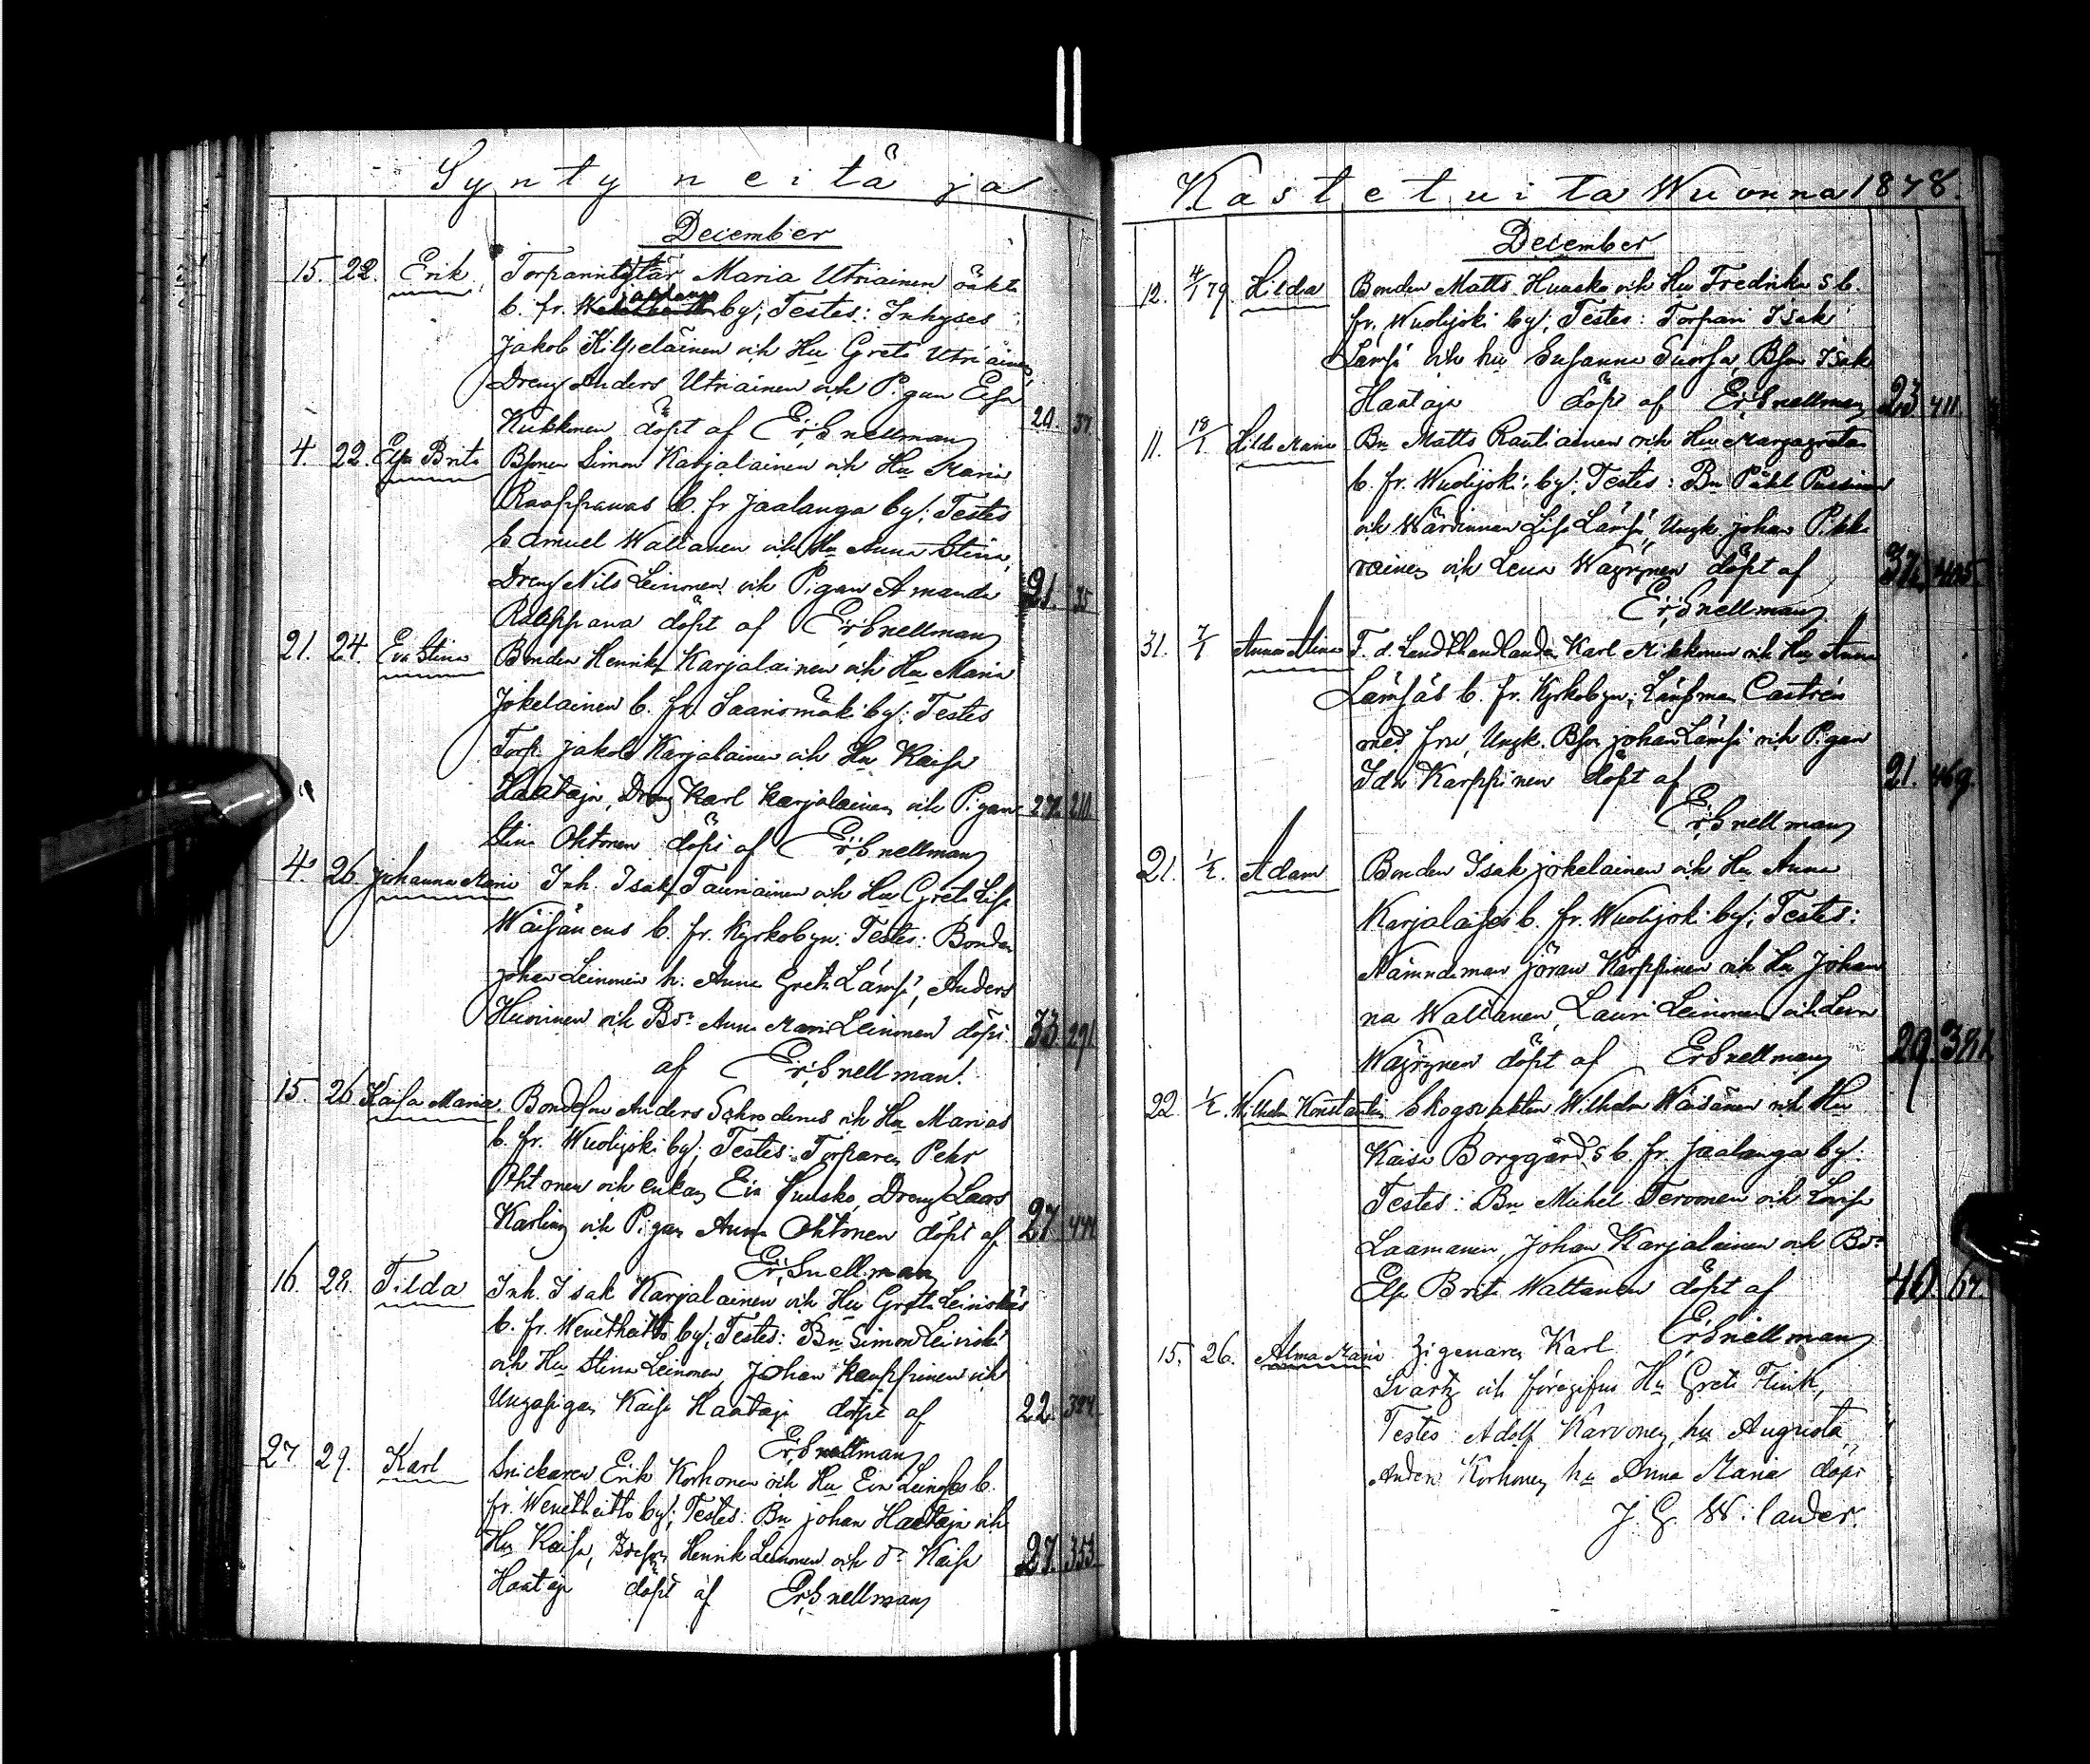 Syntyneitä ja
December
15. 22. Erik, Torparintytär Maria Utriainen oäkta
b. fr. Jaalanga by; Testes: Inhyses
Jakob Kilpeläinen och Hu Greta Utriainen,
Dreng Anders Utriainen och Pigan Elsa
Kukkonen döpt af Er. Snellman 20. 37.
4. 22. Elsa Brita Bsonen Simon Karjalainen och Hu Maria
Raappanas b. fr. Jaalanga by; Testes
Samuel Waltanen och Hu Anna Stina,
Dreng Nils Leinonen och Pigan Amanda 21. 35
Raappana döpt af Er. Snellman
21. 24. Eva Stina Bonden Henrik Karjalainen och Hu Maria
Jokelainen b. fr. Saarismäki by; Testes
Torp. Jakob Karjalainen och Hu Kaisa
Haataja, Dreng Karl Karjalainen och Pigan 27. 210.
Stina Ohtonen döpt af Er. Snellman
4. 26. Johanna Maria Inh. Isak Tauriainen och Hu Greta Lisa
Wäisänens b. fr. Kyrkobyn; Testes: Bonden
Johan Leinonen h: Anna Greta Lämsä, Anders
Huovinen och Bdr Anna Maria Leinonen döpt 33. 291.
af Er. Snellman.
15. 26. Kaisa Maria. Bondeson Anders Schroderus och Hu Marias
b. fr. Wuolijoki by; Testes: Torparen Pehr
Ohtonen och enkan Eva Huusko, Dreng Laars
Karling och Pigan Anna Ohtonen döpt af 27. 444
Er. Snellman
16. 28. Tilda Inh. Isak Karjalainen och Hu Greta Leinoskäs
b. fr. Wenetheitto by; Testes: Bn Simon Leinonen
och Hu Stina Leinonen, Johan Kauppinen och
Ungapigan Kaisa Haataja döpt af 22. 324.
Er. Snellman
27. 29. Karl Snickaren Erik Korhonen och Hu Eva Leinoskäs b.
fr. Wenetheitto by; Testes: Bn Johan Haataja och
Hu Kaisa, Bdeson Henrik Leinonen och dr Kaisa 27. 353.
Haataja döpt af Er. Snellman
Kastetuita Wuonna 1878.
December
12. 4/1 79. Hilda Bonden Matts Huusko och Hu Fredrikas b.
fr. Wuolijoki by; Testes: Torpari Isak
Lämsä och hu Susanna Tuorsa, Bson Isak
Haataja döpt af Er. Snellman 23 411.
11. 18/1. Hilda Maria Bn Matts Rautiainen och Hu Margareta
b. fr. Wuolijoki by; Testes: Bn Påhl
och Wärdinnan Lisa Lämsä, Ungk. Johan Pikka
rainen och Lena Wäyrynen döpt af 37. 405.
Er. Snellman
31. 7/1 Anna Alina F. d. Landthandlanden Karl Mikkonen och Hu Anna
Lämsäs b. fr. Kyrkobyn; Länsman Castrén
med fru, Ungk. Bson Johan Lämsä och Pigan
Ida Karppinen döpt af 21. 469.
Er. Snellman
21. 1/2. Adam Bonden Isak Jokelainen och Hu Anna
Karjalaises b. fr. Wuolijoki by; Testes:
Nämndeman Jöran Karppinen och Hu Johan
na Waltanen, Lauri Leinonen och Lena
Wäyrynen döpt af Er. Snellman 29. 381.
22. 1/2. Wilhelm Konstantin Skogsvakten Wilhelm Wäisänen och Hu
Kaisa Borggårds b. fr. Jaalanga by:
Testes: Bn Mickel Tervonen och Lovisa
Laamanen, Johan Karjalainen och Bdr
Elsa Brita Waltanen döpt af 40. 67.
Er. Snellman
15. 26. Alma Maria Zigenaren Karl
Svartz och föregifna Hu Greta Flink,
Testes Adolf Karvonen, hu Augusta
Anders Korhonen hu Anna Maria döpt
J. G. Wilander.